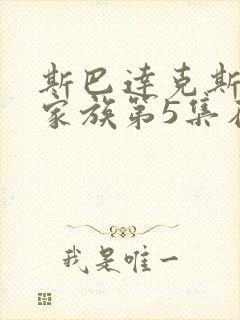 斯巴达克斯
家族第5集
我是唯一